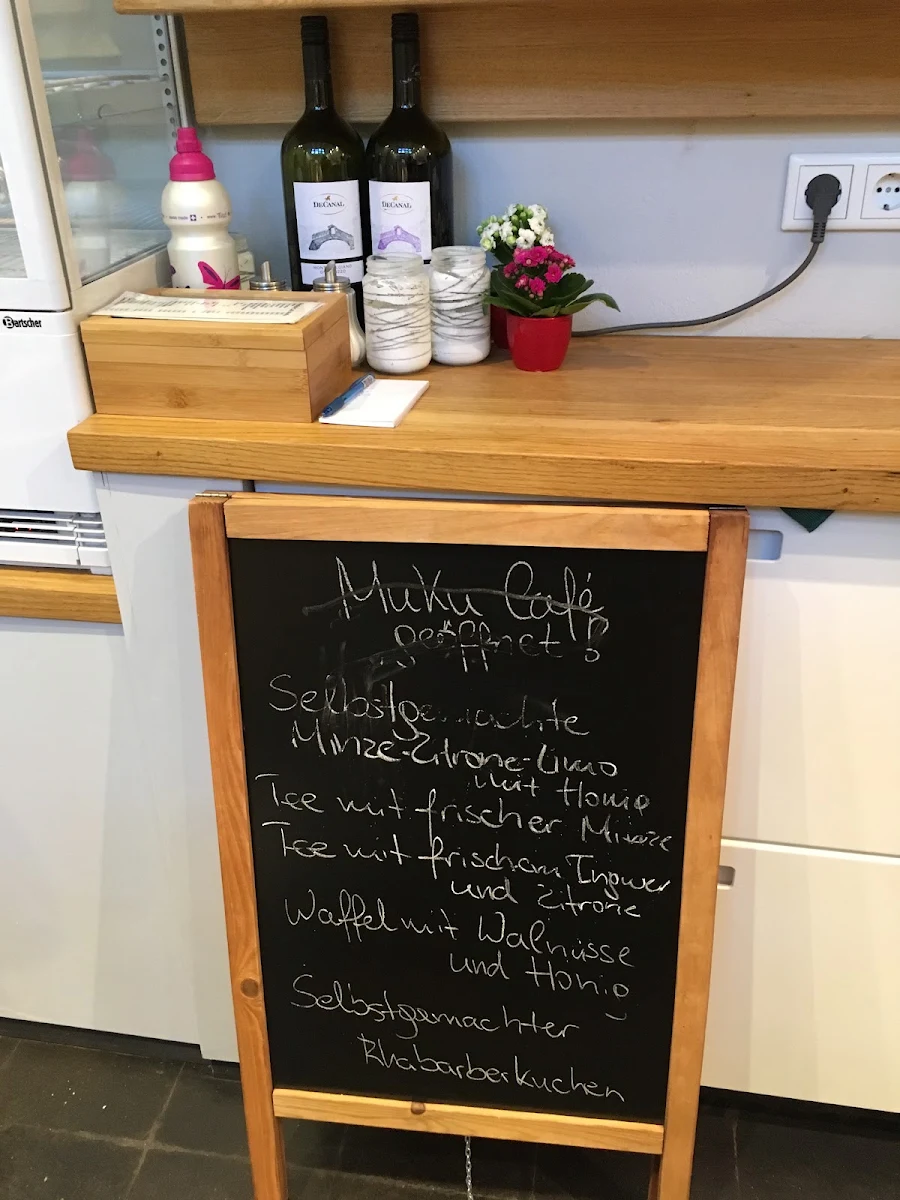 DECANAL
DECANAL
Bartscher
MuKu Café
geöffnet!
Selbstgemachte
Minze-Zitrone-Limo
mit Honig
Tee mit frischer Minze
Tee mit frischem Ingwer
und Zitrone
Waffel mit Walnüsse
und Honig
Selbstgemachter
Rhabarberkuchen